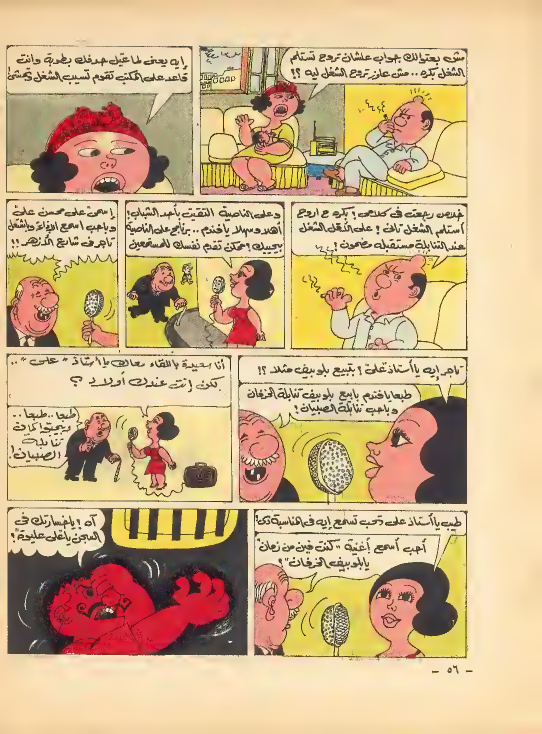 مش بعتوالك جواب علشان تروح تستلم
الشغل بكره .. مش عايز تروح الشغل ليه ؟!
إيه يعنى لما عقبل حدفك بطوبة وانت
قاعد على المكتب تقوم تسيب الشغل وتمشى؟
خلاص رجعت فى كلامى! بكره ح اروح
أستلم الشغل تانى! على الأقل الشغل
عند التنابلة مستقبله مضمون!
وعلى الناصية التقيت بأحد الشبان!
أهلا وسهلا يا فندم .. برنامج على الناصية
بيحييك! ممكن تقدم نفسك للمستمعين
إسمى على محسن على
وباحب اسمع الأغانى وباشتغل
تاجر فى شارع الأزهر!!
تاجر إيه يا أستاذ على؟ بتبيع بلوبيف مثلا ؟!
طبعا يا فندم بابيع بلوبيف تنابلة الخرفان
وباحب تنابلة الصبيان!
أنا سعيدة باللقاء معاك يا أستاذ "على" ..
لكن إنت عندك أولاد ؟
طبعا .. طبعا ..
وبيحبوا كافة
تنابلة
الصبيان!
طيب يا أستاذ على تحب تسمع إيه فى المناسبة دى؟
أحب أسمع أغنية "كنت فين من زمان
يا بلوبيف الخرفان"؟
آه! يا خسارتك فى
السجن يا على عليوة"!
- ٥٦ -